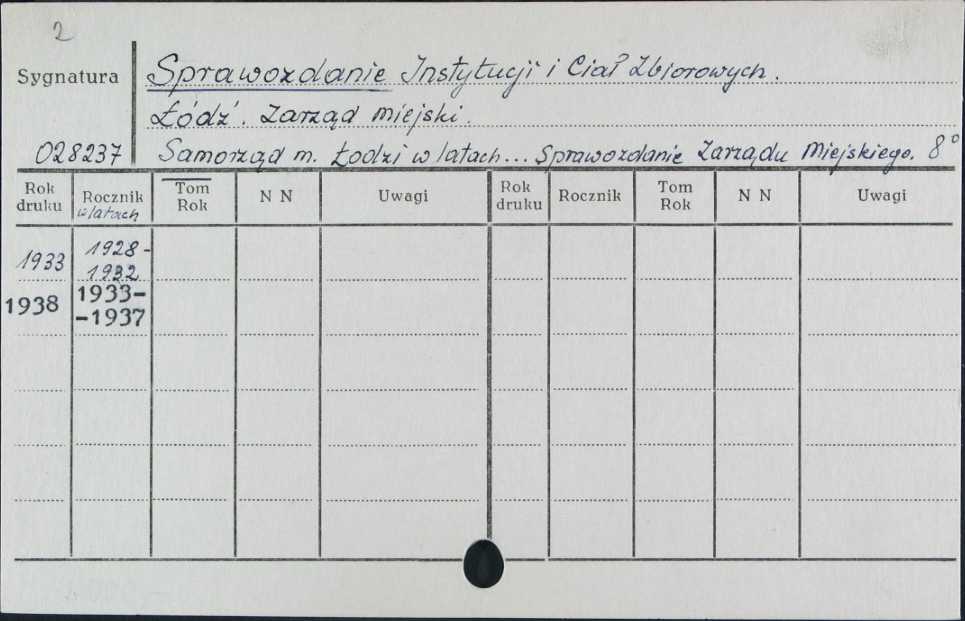 2
Sygnatura
Sprawozdanie Instytucji i Ciał Zbiorowych.
Łódź. Zarząd miejski.
028237
Samorząd m. Łodzi w latach... Sprawozdanie Zarządu Miejskiego. 8°
Rok druku
Rocznik
w latach
Tom
Rok
N N
Uwagi
Rok druku
Rocznik
Tom
Rok
N N
Uwagi
1933
1928-
1932
1938
1933-
-1937